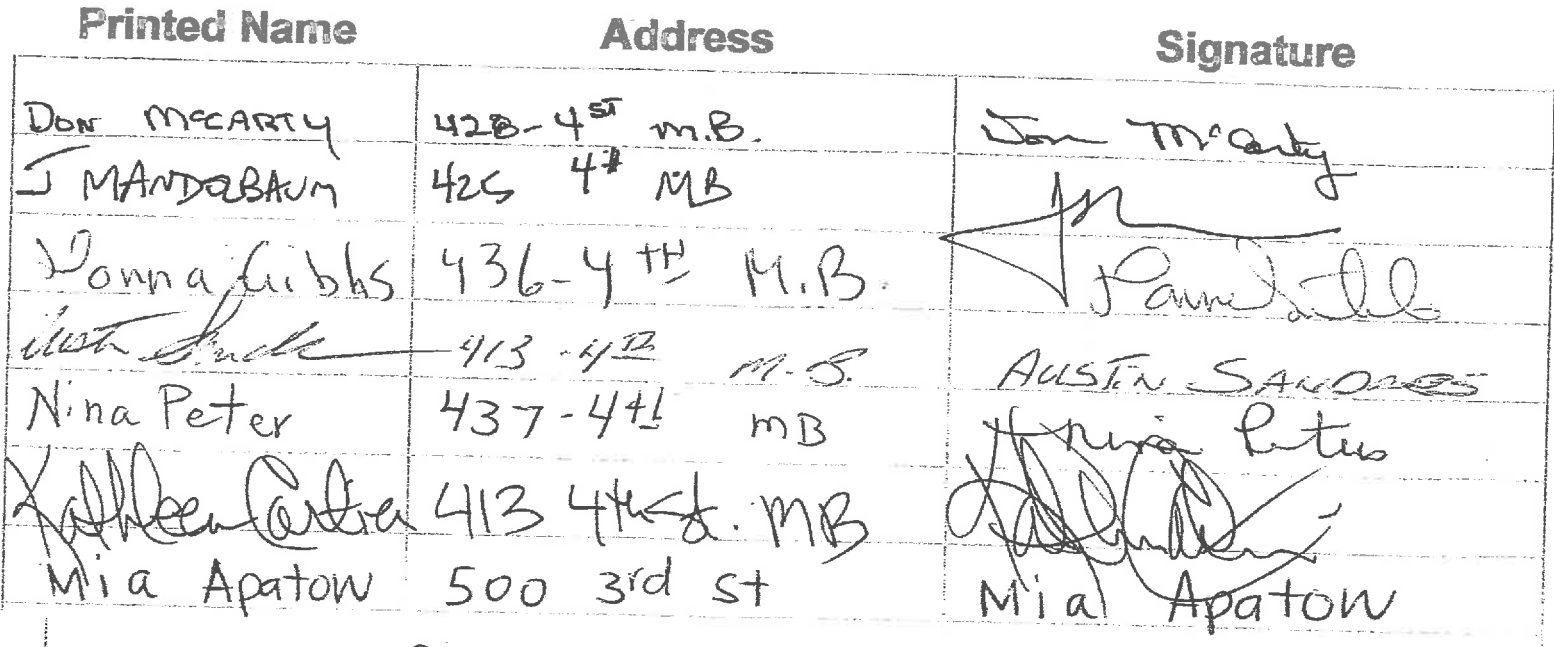 Printed Name Address Signature
DON McCARTY 428-4ST M.B. Don McCarty
J MANDELBAUM 425 4th MB
Donna Gibbs 436-4TH M.B. Donna Gibbs
Austin 413-4TH M.B. AUSTIN SANDERS
Nina Peter 437-4th MB Nina Peters
Kathleen 413 4th St. MB
Mia Apatow 500 3rd St Mia Apatow